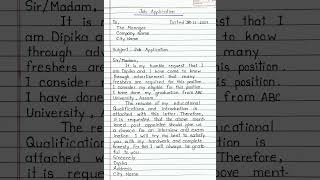 Job Application
To,
Dated
The Manager
Company Name
City Name
Subject : Job Application
Sir/Madam,
It is my humble request that I
am Dipika and I have come to know
through advertisement that many
freshers are required for this position.
I consider my eligible for this position.
I have done my graduation from ABC
University, Assam.
The resume of my educational
Qualifications and Introduction is
attached with this letter. Therefore,
it is requested that the above ment-
ioned post appointee should give us
a chance for an interview and exam-
ination. I will try my best to satisfy
you with my hardwork and complete
honesty. For this I will always be grate-
ful to you.
Sincerely
Dipika
Address
City Name
Sir/Madam,
It is
am Dipika
through adv
freshers are
I consider m
I have done
University,
The
Qualification
attached w
it is reque
est that I
to know
many
position.
position.
from ABC
educational
ction is
Therefore,
ove ment-